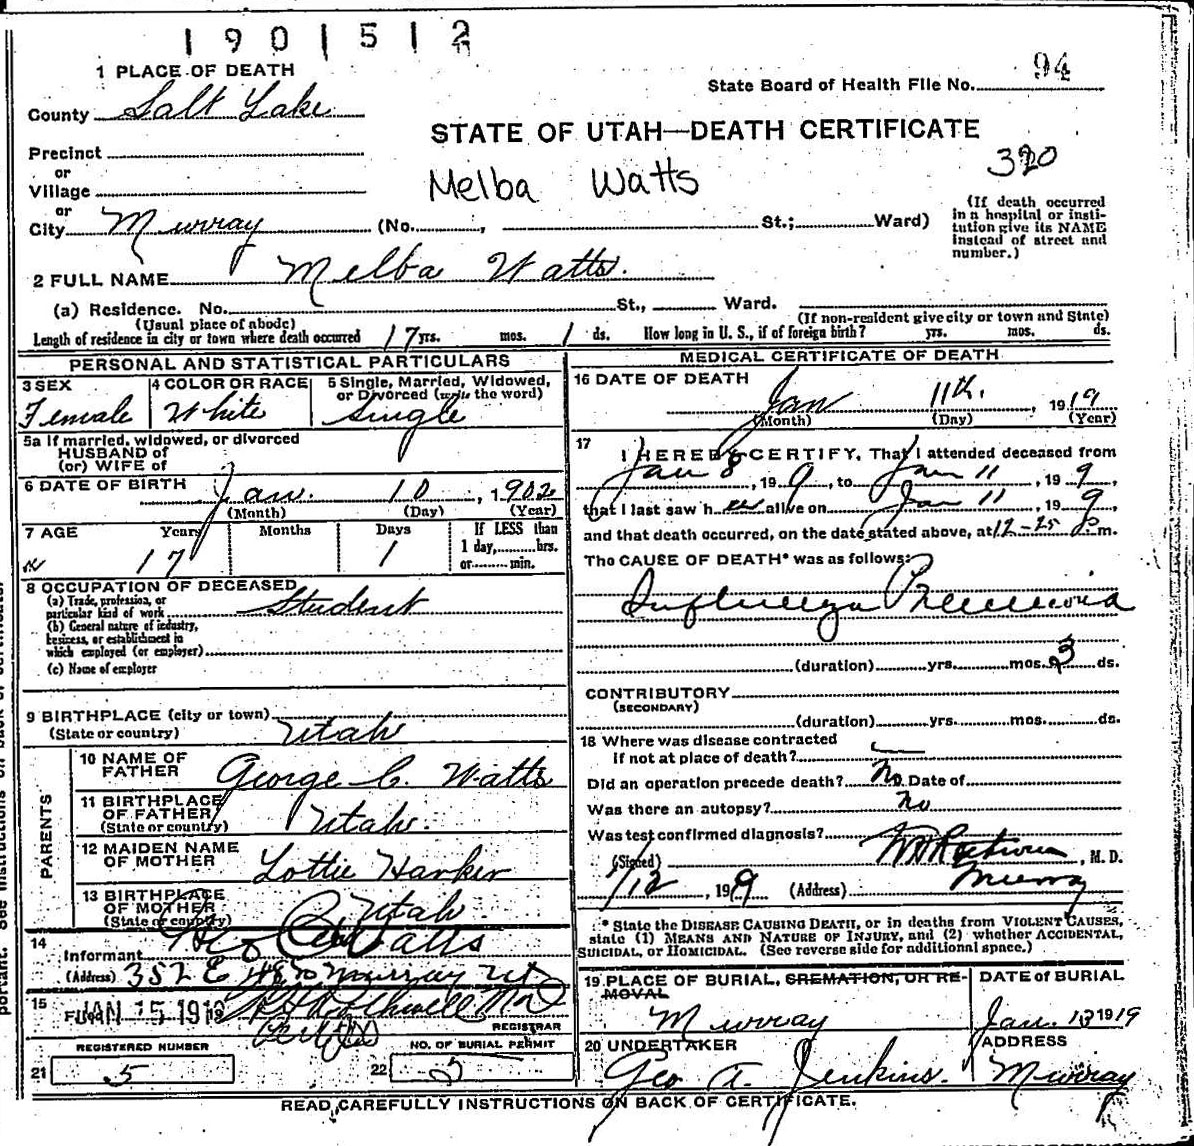 1901512
1 PLACE OF DEATH
State Board of Health File No. 94
County Salt Lake
STATE OF UTAH—DEATH CERTIFICATE
Precinct
or
Village
Melba Watts
320
or
City Murray (No. , St.; Ward)
(If death occurred in a hospital or institution give its NAME instead of street and number.)
2 FULL NAME Melba Watts.
(a) Residence. No. St., Ward.
(Usual place of abode) (If non-resident give city or town and State)
Length of residence in city or town where death occurred 17 yrs. mos. 1 ds. How long in U. S., if of foreign birth? yrs. mos. ds.
PERSONAL AND STATISTICAL PARTICULARS
3 SEX Female
4 COLOR OR RACE White
5 Single, Married, Widowed, or Divorced (write the word) Single
5a If married, widowed, or divorced
HUSBAND of
(or) WIFE of
6 DATE OF BIRTH Jan. 10, 1902
(Month) (Day) (Year)
7 AGE Years Months Days If LESS than
17 1 1 day, hrs.
or min.
8 OCCUPATION OF DECEASED
(a) Trade, profession, or
particular kind of work Student
(b) General nature of industry,
business, or establishment in
which employed (or employer)
(c) Name of employer
9 BIRTHPLACE (city or town)
(State or country) Utah
PARENTS
10 NAME OF FATHER George C. Watts
11 BIRTHPLACE OF FATHER (State or country) Utah.
12 MAIDEN NAME OF MOTHER Lottie Harker
13 BIRTHPLACE OF MOTHER (State or country) Utah
14
Informant Geo C Watts
(Address) 352 E 48 So Murray Ut
15 Filed JAN 15 1919
REGISTRAR
REGISTERED NUMBER
21 5
NO. OF BURIAL PERMIT
22 5
MEDICAL CERTIFICATE OF DEATH
16 DATE OF DEATH
Jan 11th., 1919
(Month) (Day) (Year)
17 I HEREBY CERTIFY, That I attended deceased from
Jan 8, 19 9, to Jan 11, 19 9,
that I last saw h er alive on Jan 11, 19 9,
and that death occurred, on the date stated above, at 12-25 P. m.
The CAUSE OF DEATH* was as follows:
Influenza Pneumonia
(duration) yrs. mos. 3 ds.
CONTRIBUTORY
(SECONDARY)
(duration) yrs. mos. ds.
18 Where was disease contracted
if not at place of death?
Did an operation precede death? No Date of
Was there an autopsy? No
Was test confirmed diagnosis?
(Signed) , M. D.
1/12, 19 19 (Address) Murray
* State the DISEASE CAUSING DEATH, or in deaths from VIOLENT CAUSES,
state (1) MEANS AND NATURE OF INJURY, and (2) whether ACCIDENTAL,
SUICIDAL, or HOMICIDAL. (See reverse side for additional space.)
19 PLACE OF BURIAL, CREMATION, OR REMOVAL
Murray
DATE OF BURIAL
Jan. 13 1919
20 UNDERTAKER
Geo A. Jenkins.
ADDRESS
Murray
READ CAREFULLY INSTRUCTIONS ON BACK OF CERTIFICATE.